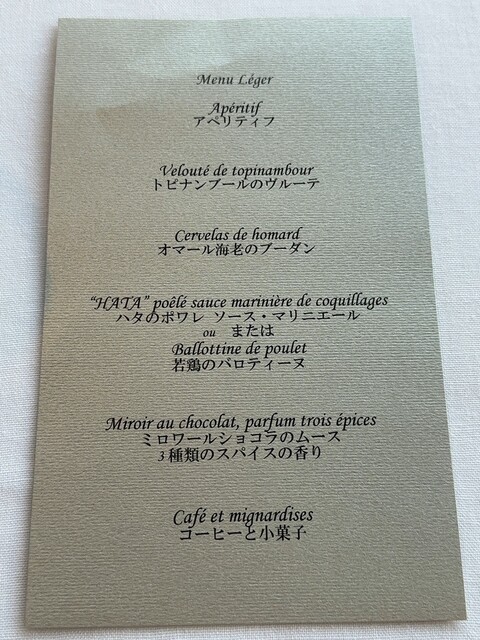 Menu Léger
Apéritif
アペリティフ
Velouté de topinambour
トピナンブールのヴルーテ
Cervelas de homard
オマール海老のブーダン
“HATA” poêlé sauce marinière de coquillages
ハタのポワレ ソース・マリニエール
ou または
Ballottine de poulet
若鶏のバロティーヌ
Miroir au chocolat, parfum trois épices
ミロワールショコラのムース
3種類のスパイスの香り
Café et mignardises
コーヒーと小菓子